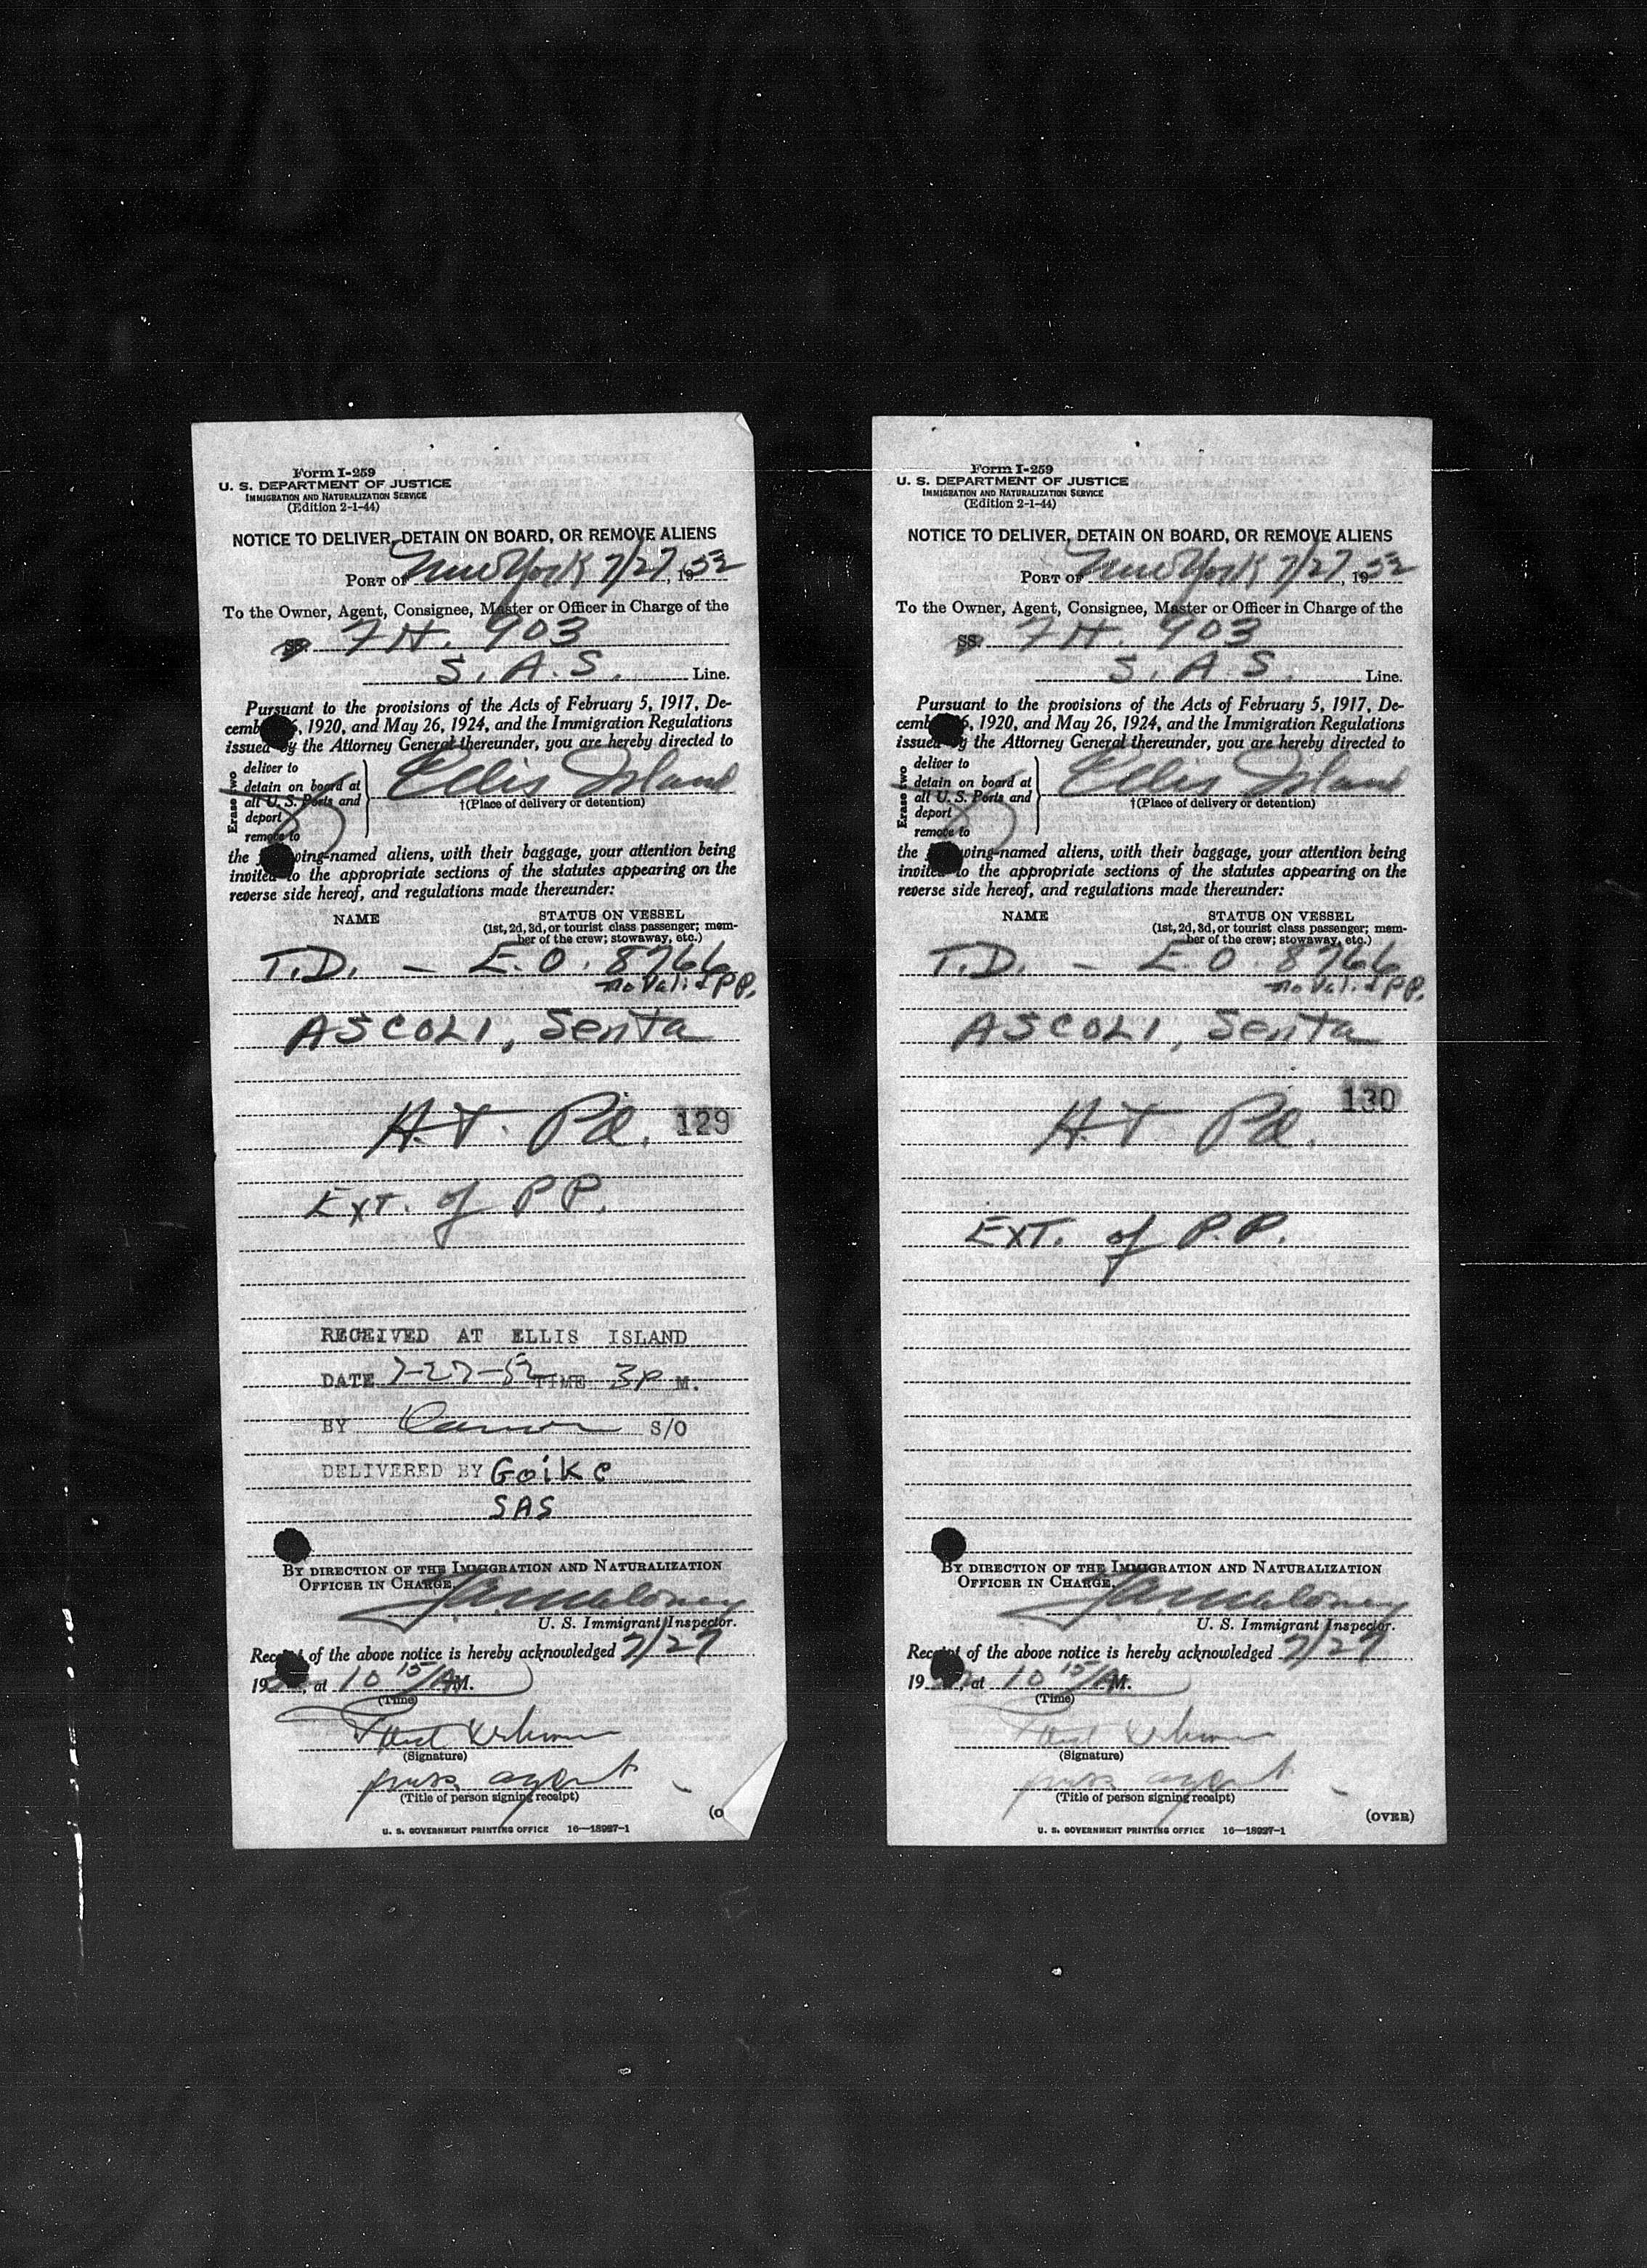 Form I-259
U. S. DEPARTMENT OF JUSTICE
IMMIGRATION AND NATURALIZATION SERVICE
(Edition 2-1-44)
NOTICE TO DELIVER, DETAIN ON BOARD, OR REMOVE ALIENS
PORT OF New York 7/27, 1952
To the Owner, Agent, Consignee, Master or Officer in Charge of the
SS. 7H. 903
S. A. S. Line.
Pursuant to the provisions of the Acts of February 5, 1917, De-
cemb 6, 1920, and May 26, 1924, and the Immigration Regulations
issued by the Attorney General thereunder, you are hereby directed to
Erase two
deliver to
detain on board at
all U. S. Ports and
deport
remove to
Ellis Island
†(Place of delivery or detention)
the wing-named aliens, with their baggage, your attention being
invited to the appropriate sections of the statutes appearing on the
reverse side hereof, and regulations made thereunder:
NAME STATUS ON VESSEL
(1st, 2d, 3d, or tourist class passenger; mem-
ber of the crew; stowaway, etc.)
T.D. — E.O. 8766
no Valid PP.
ASCOLI, Senta
H.T. Pd. 129
Ext. of PP.
RECEIVED AT ELLIS ISLAND
DATE 7-27-52 TIME 3P M.
BY S/O
DELIVERED BY Goike
SAS
BY DIRECTION OF THE IMMIGRATION AND NATURALIZATION
OFFICER IN CHARGE.
Maloney
U. S. Immigrant Inspector.
Receipt of the above notice is hereby acknowledged 7/27
195, at 10 15/AM.
(Time)
(Signature)
pass agent
(Title of person signing receipt)
(O
U. S. GOVERNMENT PRINTING OFFICE 16—18927-1
Form I-259
U. S. DEPARTMENT OF JUSTICE
IMMIGRATION AND NATURALIZATION SERVICE
(Edition 2-1-44)
NOTICE TO DELIVER, DETAIN ON BOARD, OR REMOVE ALIENS
PORT OF New York 7/27, 1952
To the Owner, Agent, Consignee, Master or Officer in Charge of the
SS. 7H. 903
S. A. S. Line.
Pursuant to the provisions of the Acts of February 5, 1917, De-
cemb 6, 1920, and May 26, 1924, and the Immigration Regulations
issued by the Attorney General thereunder, you are hereby directed to
Erase two
deliver to
detain on board at
all U. S. Ports and
deport
remove to
Ellis Island
†(Place of delivery or detention)
the wing-named aliens, with their baggage, your attention being
invited to the appropriate sections of the statutes appearing on the
reverse side hereof, and regulations made thereunder:
NAME STATUS ON VESSEL
(1st, 2d, 3d, or tourist class passenger; mem-
ber of the crew; stowaway, etc.)
T.D. — E.O. 8766
no Valid PP.
ASCOLI, Senta
130
H.T. Pd.
EXT. of P.P.
BY DIRECTION OF THE IMMIGRATION AND NATURALIZATION
OFFICER IN CHARGE.
Maloney
U. S. Immigrant Inspector.
Receipt of the above notice is hereby acknowledged 7/27
19, at 10 15/AM.
(Time)
(Signature)
pass agent
(Title of person signing receipt)
(OVER)
U. S. GOVERNMENT PRINTING OFFICE 16—18927-1